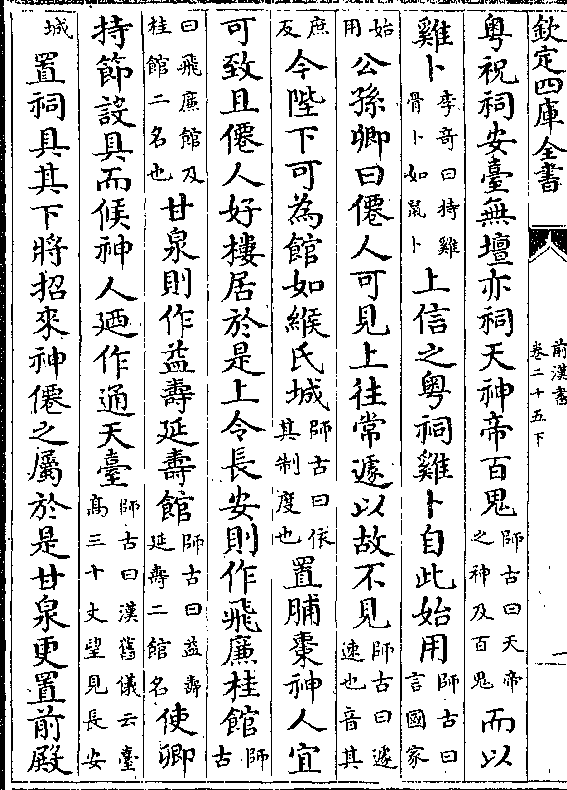 欽定四庫全書
前漢書
卷二十五下
一
粵祝祠安臺無壇亦祠天神帝百鬼師古曰天帝之神及百鬼而以
雞卜李奇曰持雞骨卜如鼠卜上信之粵祠雞卜自此始用師古曰言國家
始用公孫卿曰僊人可見上往常遽以故不見師古曰遽速也音其
庶反今陛下可為館如緱氏城師古曰依其制度也置脯棗神人宜
可致且僊人好樓居於是上令長安則作飛廉桂館師古
曰飛廉館及桂館二名也甘泉則作益壽延壽館師古曰益壽延壽二館名使卿
持節設具而候神人廼作通天臺師古曰漢舊儀云臺高三十丈望見長安
城置祠具其下將招來神僊之屬於是甘泉更置前殿